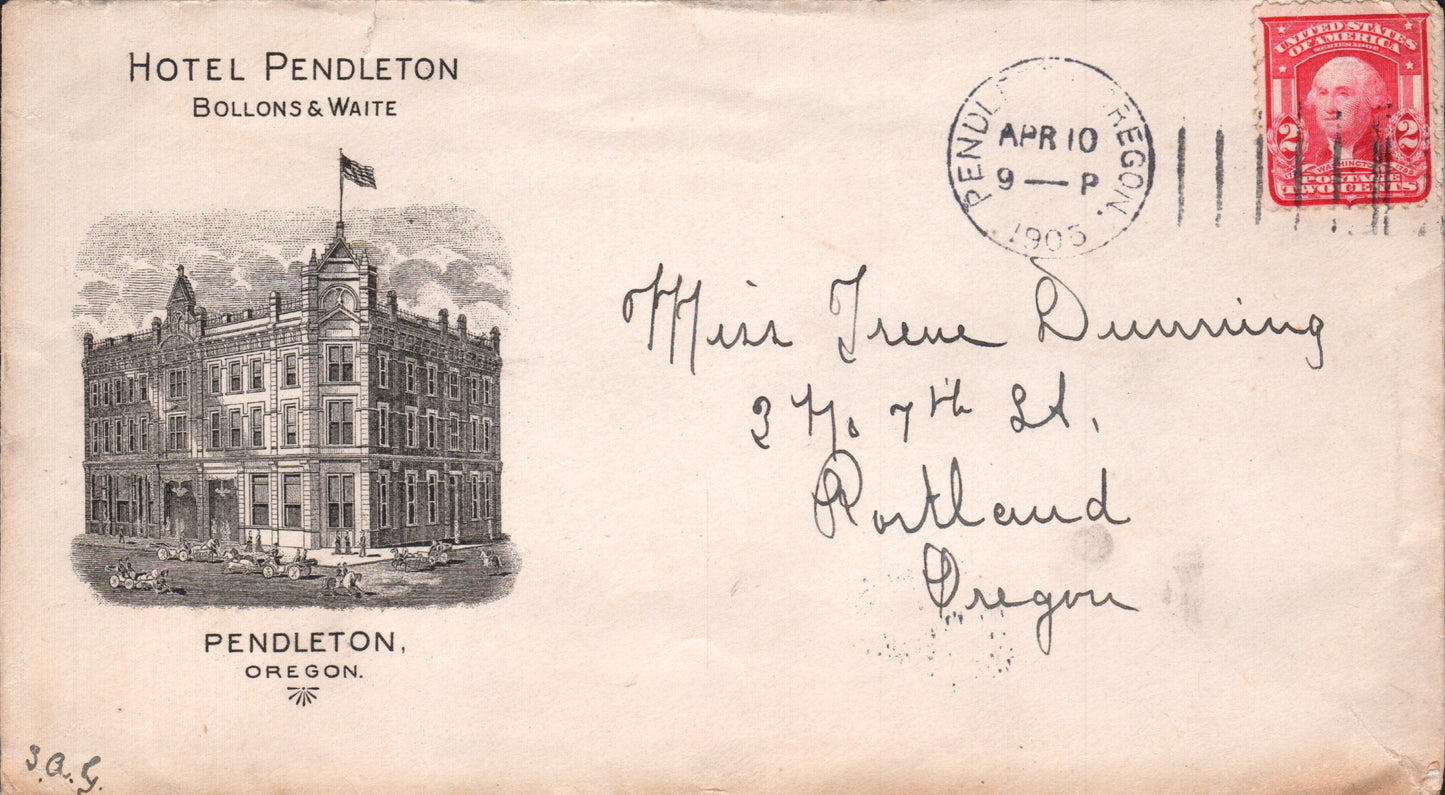 HOTEL PENDLETON
BOLLONS & WAITE
PENDLETON,
OREGON.
PENDL REGON.
APR 10
9 — P
1905
UNITED STATES
OF AMERICA
SERIES 1902
2 2
WASHINGTON
POSTAGE
TWO CENTS
Miss Irene Dunning
3 No 7th St,
Portland
Oregon